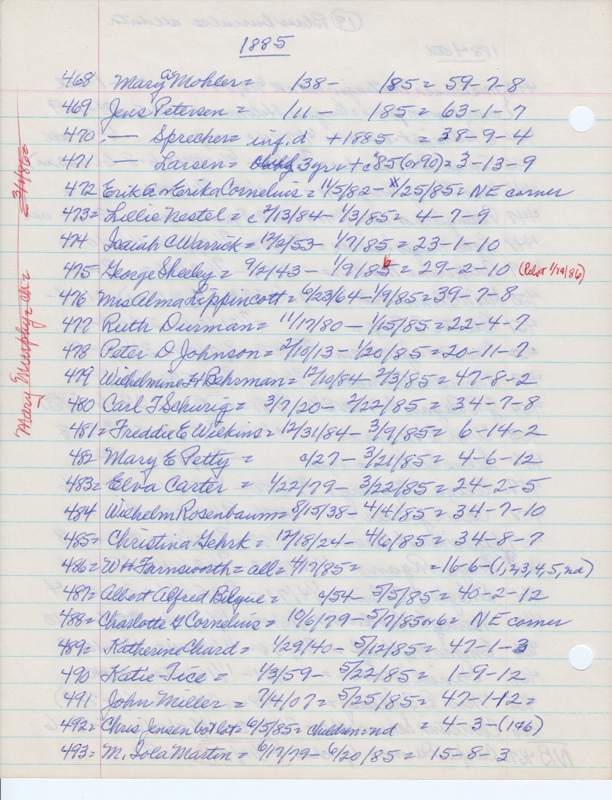 1885
468 Mary C Mohler = 138 - 185 = 59-7-8
469 Jens Petersen = 111 - 185 = 63-1-7
470 - Sprecher = inf. d +1885 = 38-9-4
471 - Larsen = 3yr = + c'85 (or 90) = 3-13-9
472 Erik G or Erika Cornelius = 11/5/82 - /25/85 = NE corner
473 = Lillie Nestel = c 2/13/84 - 1/3/85 = 4-7-9
474 Isaiah C Warrick = 12/2/53 - 1/7/85 = 23-1-10
475 George Sheeley = 9/2/43 - 1/9/86 = 29-2-10 (1/19/86)
476 Mrs Alma Lippincott = 6/23/64 - 1/9/85 = 39-7-8
477 Ruth Durman = 11/17/80 - 1/15/85 = 22-4-7
478 Peter D Johnson = 2/10/13 - 1/20/85 = 20-11-7
479 Wilhelmine H Behrman = 12/10/84 - 2/3/85 = 47-8-2
480 Carl F Schurig = 3/7/20 - 2/22/85 = 34-7-8
481 = Freddie E Wilkins = 12/31/84 - 3/9/85 = 6-14-2
482 Mary E Petty = c/27 - 3/21/85 = 4-6-12
483 = Elva Carter = 1/22/79 - 3/22/85 = 24-2-5
484 Wilhelm Rosenbaum = 8/15/38 - 4/4/85 = 34-7-10
485 = Christina Gehrk = 12/18/24 - 4/6/85 = 34-8-7
486 = W H Farnsworth = all = 4/17/85 = = 16-6-(1,2,3,4,5, nd)
487 = Albert Alfred Bilque = c/54 - 5/5/85 = 40-2-12
488 = Charlotte G Cornelius = 10/6/79 - 5/7/85 or 6 = NE corner
489 = Katherine Chard = 1/29/40 - 5/12/85 = 47-1-3
490 Katie Tice = 1/3/59 - 5/22/85 = 1-9-12
491 John Miller = 7/4/07 = 5/25/85 = 47-1-12 =
492 = Chris Jensen bot lot = 6/5/85 = children = nd = 4-3-(1+6)
493 = M. Iola Martin = 6/17/79 - 6/20/85 = 15-8-3
Mary Murphy =